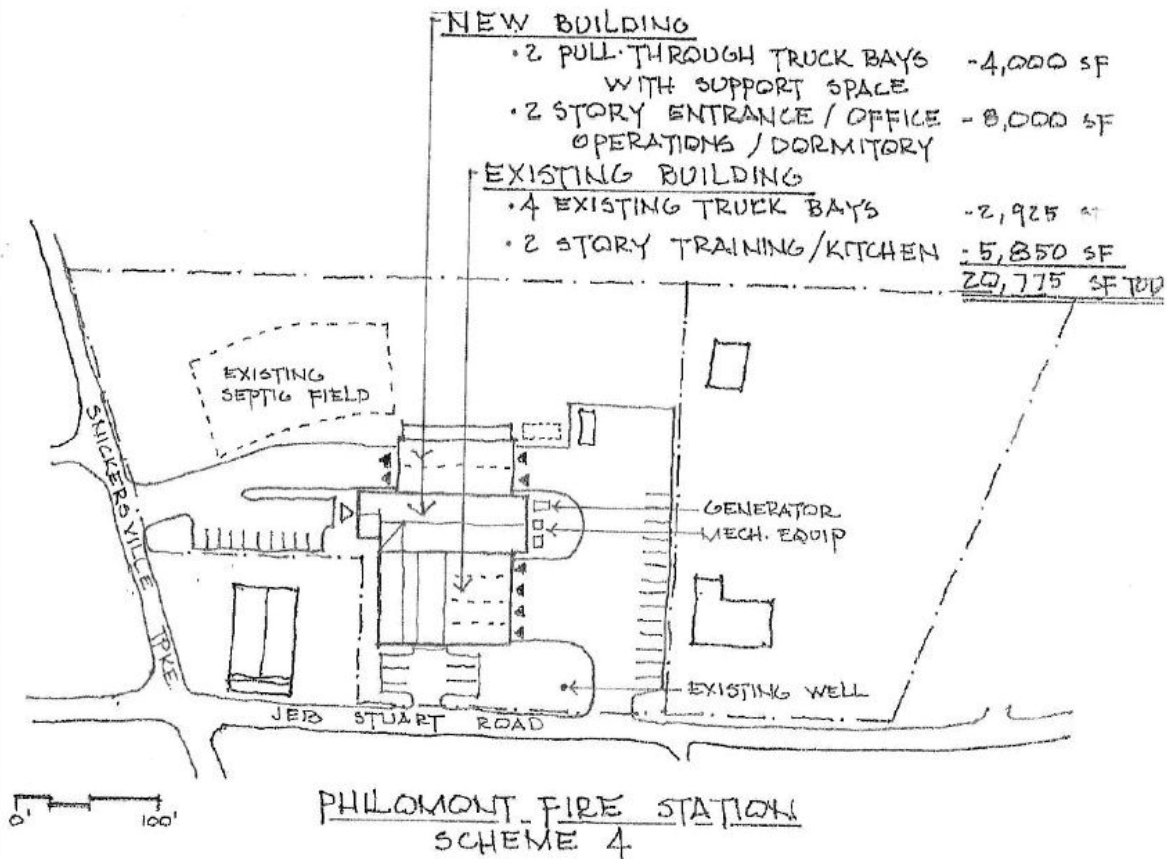 NEW BUILDING
·2 PULL-THROUGH TRUCK BAYS -4,000 SF
WITH SUPPORT SPACE
·2 STORY ENTRANCE / OFFICE - 8,000 SF
OPERATIONS / DORMITORY
EXISTING BUILDING
·4 EXISTING TRUCK BAYS -2,925 SF
·2 STORY TRAINING/KITCHEN -5,850 SF
20,775 SF
EXISTING
SEPTIC FIELD
SNICKERSVILLE TPKE
GENERATOR
MECH. EQUIP
EXISTING WELL
JEB STUART ROAD
0' 100'
PHILOMONT FIRE STATION
SCHEME 4